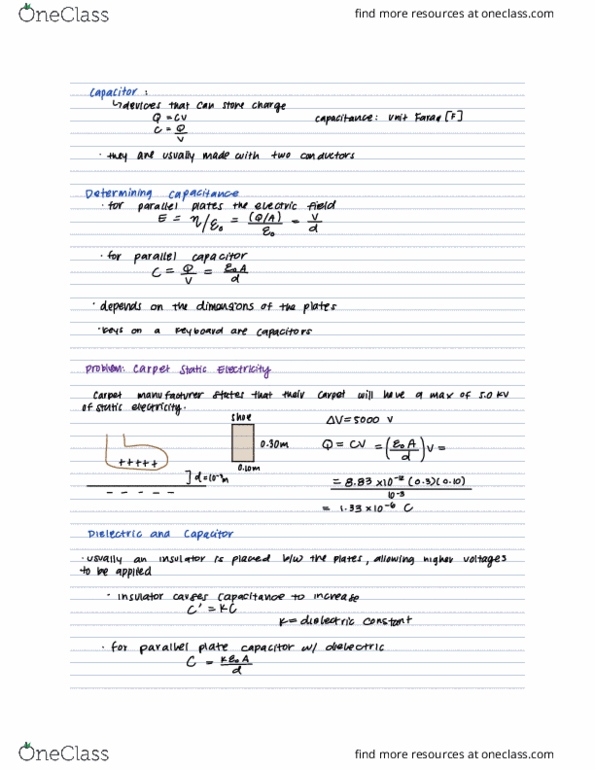 OneClass
find more resources at oneclass.com
Capacitor :
↳devices that can store charge
Q = CV
capacitance: unit Farad [F]
C = Q/V
· they are usually made with two conductors
Determining Capacitance
· for parallel plates the electric field
E = η/ε₀ = (Q/A)/ε₀ = V/d
· for parallel capacitor
C = Q/V = ε₀A/d
· depends on the dimensions of the plates
· keys on a keyboard are capacitors
Problem: Carpet Static Electricity
Carpet manufacturer states that their carpet will have a max of 5.0 kV
of static electricity.
shoe
ΔV = 5000 V
0.30m
Q = CV = (ε₀A/d)V =
+++++
0.10m
]d=10⁻³m
= 8.83 ×10⁻¹² (0.3)(0.10)
10⁻³
- - - - -
= 1.33 ×10⁻⁶ C
Dielectric and Capacitor
· usually an insulator is placed b/w the plates, allowing higher voltages
to be applied
· insulator causes capacitance to increase
C' = KC
K= dielectric constant
· for parallel plate capacitor w/ dielectric
C = Kε₀A/d
OneClass
find more resources at oneclass.com